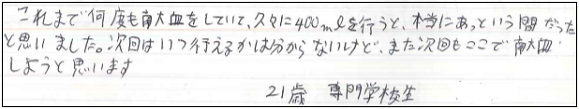 これまで何度も献血をしていて、久々に400mlを行うと、本当にあっという間だった
と思いました。次回はいつ行えるかは分からないけど、また次回もここで献血
しようと思います
21歳 専門学校生